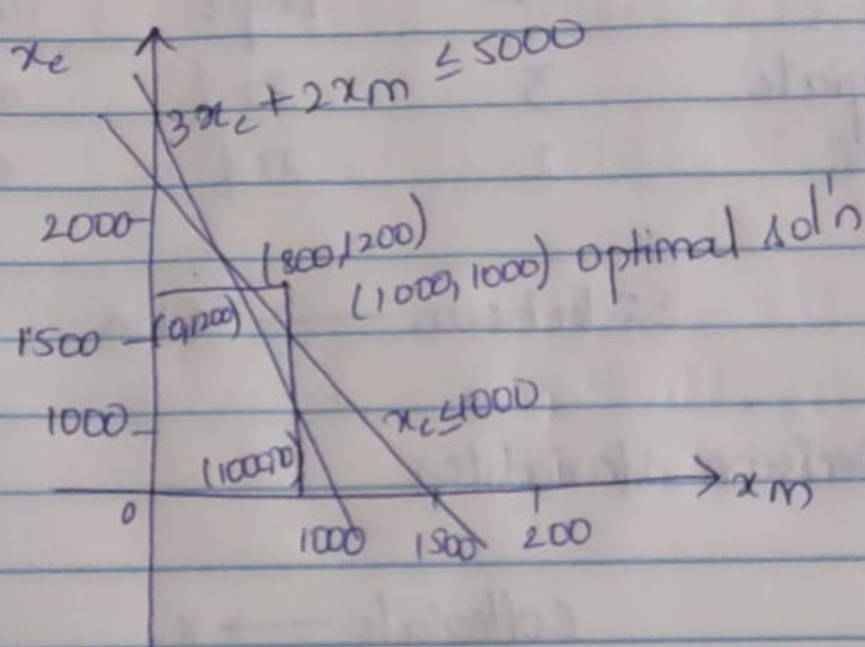 xc
3xc + 2xm ≤ 5000
2000
(800,1200)
(1000, 1000) optimal sol'n
(0,1200)
1500
xc ≤ 1000
1000
(1000,0)
xm
0
1000
1500
200